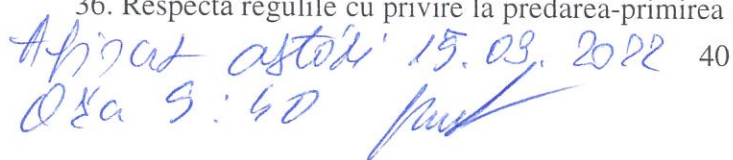 36. Respectă regulile cu privire la predarea-primirea
Afișat astăzi 15.03.2022 40
Ora 9:40